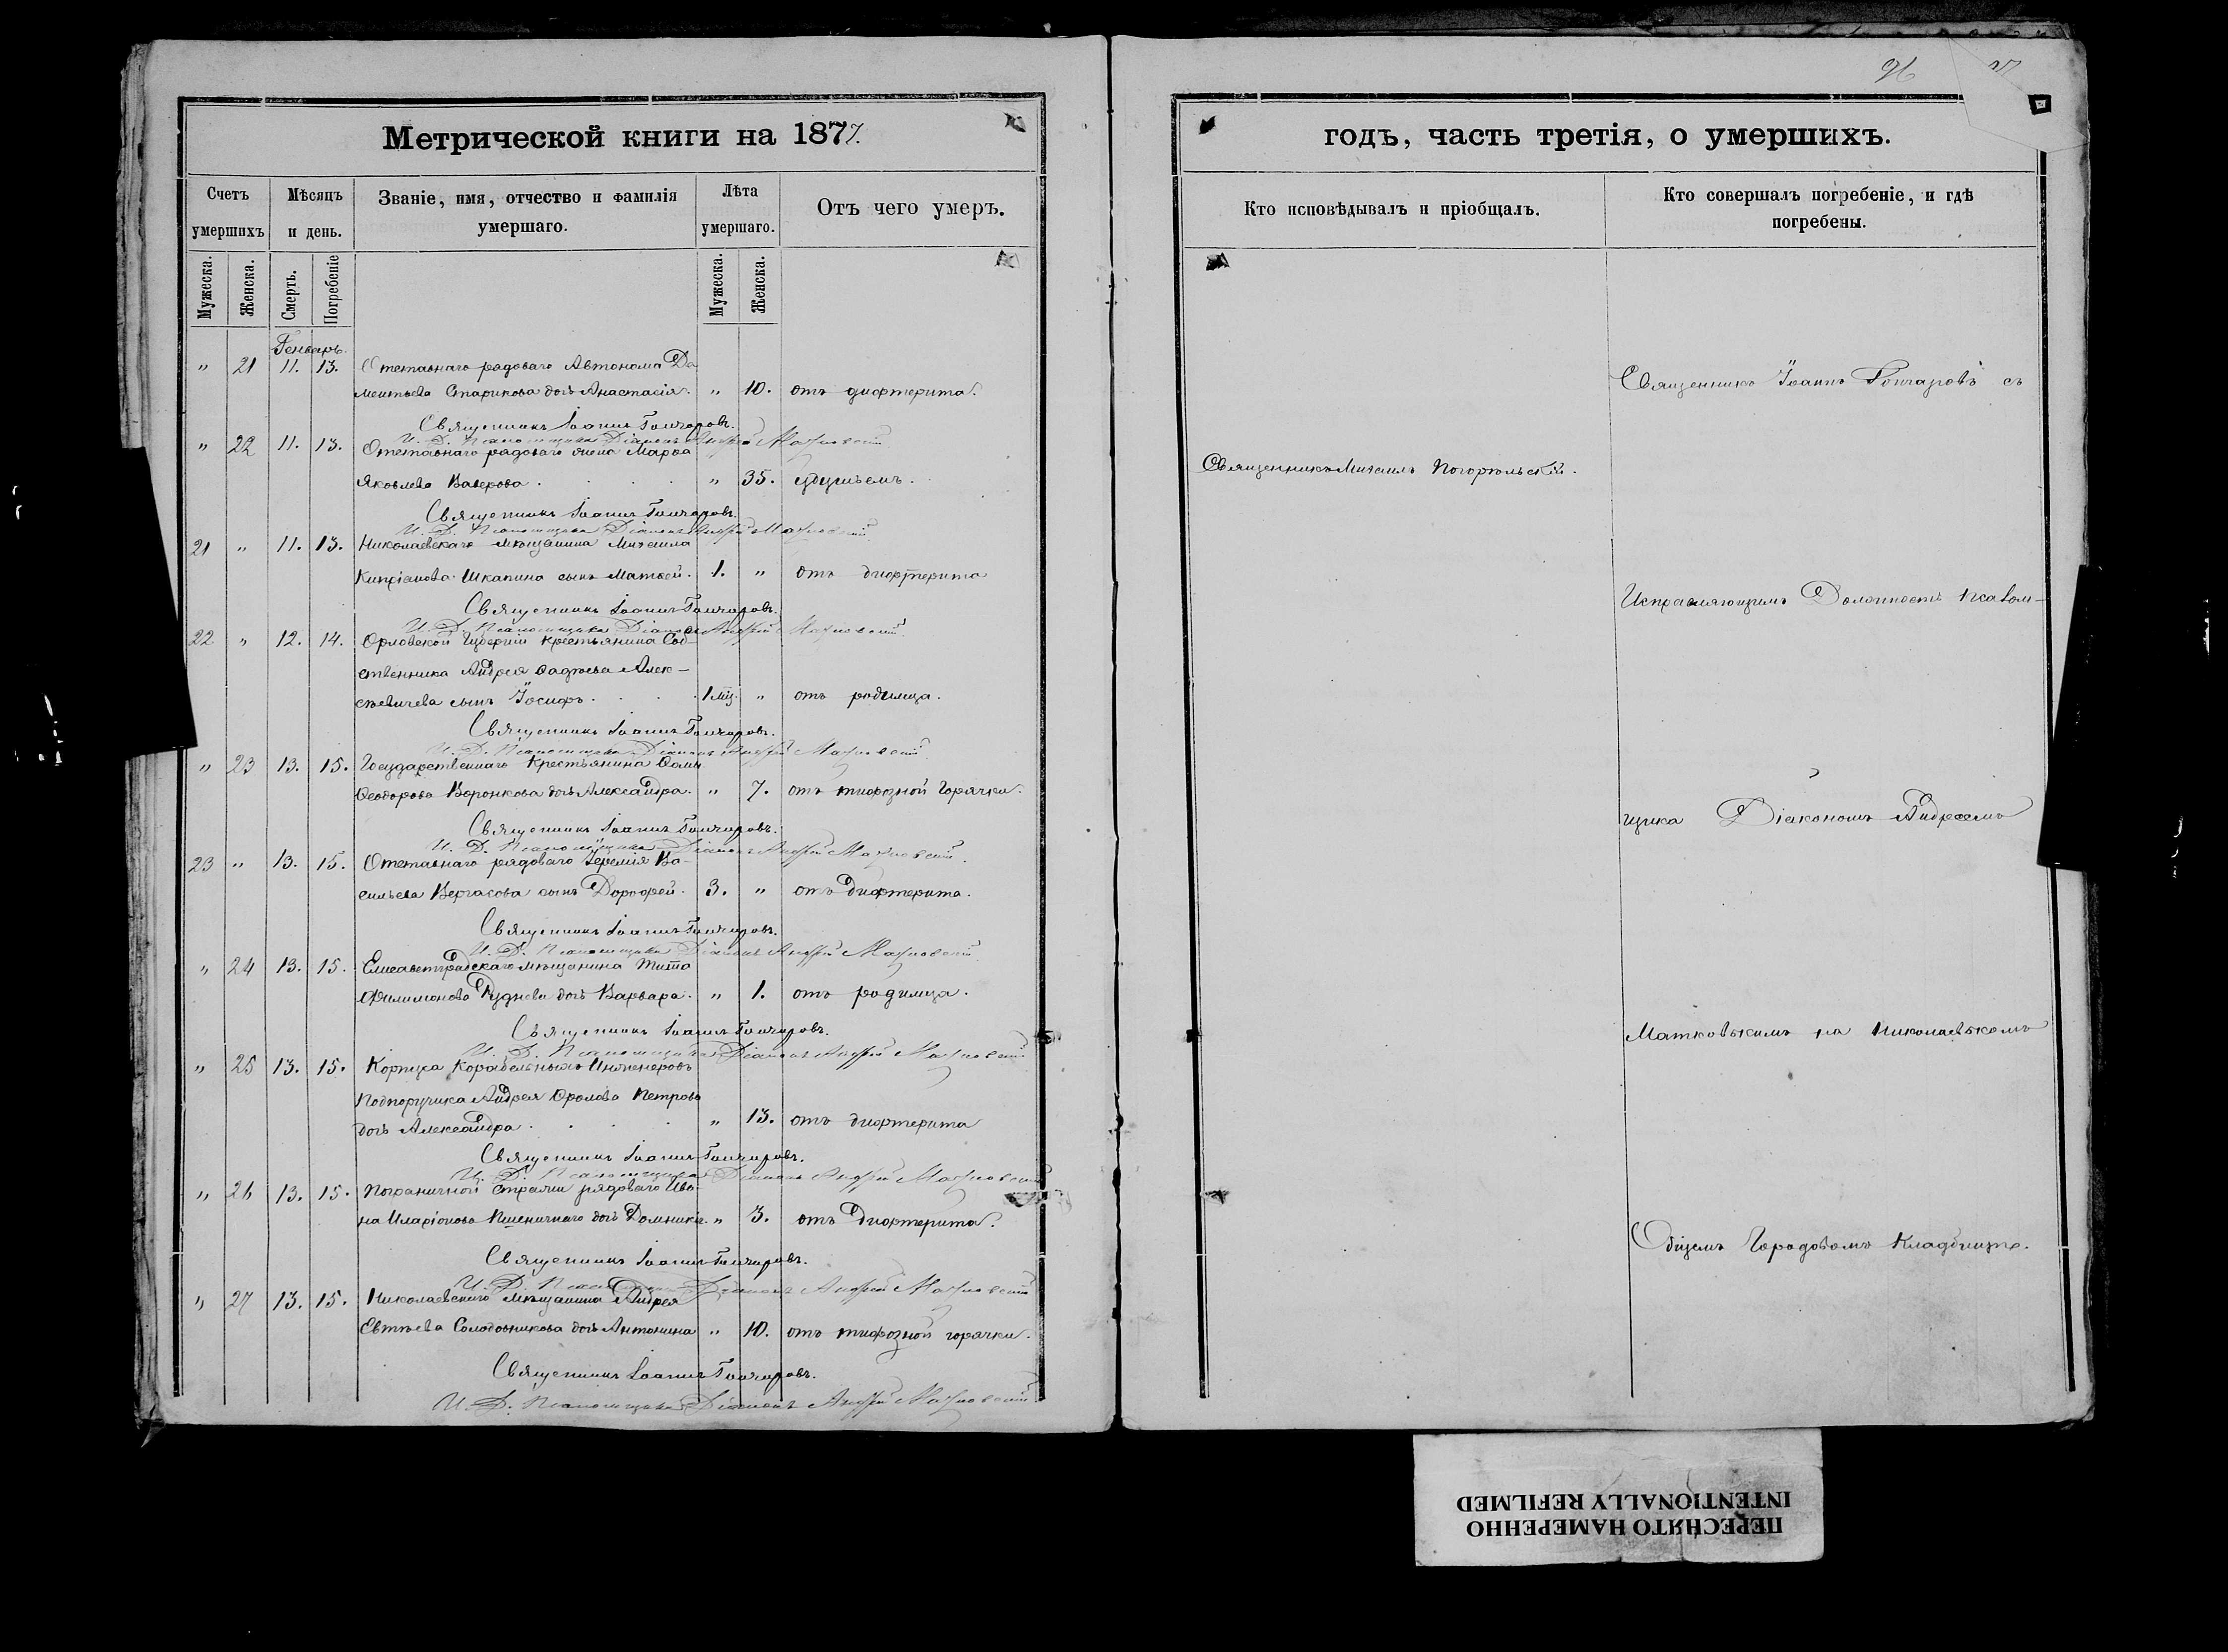 Метрической книги на 1877.
Счетъ умершихъ
Мѣсяцъ и день.
Званіе, имя, отчество и фамилія умершаго.
Лѣта умершаго.
Отъ чего умеръ.
Мужеска.
Женска.
Смерть.
Погребеніе
Мужеска.
Женска.
Генварь
" 21 11. 13. Отставнаго рядоваго Автонома До
ментьева Старикова дочь Анастасія. " 10. отъ дифтерита.
Священникъ Іоаннъ Гончаровъ.
И. Д. Псаломщика Діаконъ Андрей Матковскій
" 22 11. 13. Отставнаго рядоваго жена Марфа
Яковлева " 35. удушьемъ.
Священникъ Іоаннъ Гончаровъ.
И. Д. Псаломщика Діаконъ Андрей Матковскій
21 " 11. 13. Николаевскаго мѣщанина Михаила
Кипріанова Шкапина сынъ Матвей. 1. " отъ дифтерита
Священникъ Іоаннъ Гончаровъ.
И. Д. Псаломщика Діаконъ Андрей Матковскій
22 " 12. 14. Орловской Губерніи крестьянина Соб-
ственника Андрея Фадѣева Алек-
сѣевичева сынъ Іосифъ. 1 мц. " отъ родимца.
Священникъ Іоаннъ Гончаровъ.
И. Д. Псаломщика Діаконъ Андрей Матковскій
" 23 13. 15. Государственнаго Крестьянина Фомы
Феодорова Воронкова дочь Александра. " 7. отъ тифозной горячки.
Священникъ Іоаннъ Гончаровъ.
И. Д. Псаломщика Діаконъ Андрей Матковскій
23 " 13. 15. Отставнаго рядоваго Іеремія Ва-
сильева сынъ Дорофей. 3. " отъ Дифтерита.
Священникъ Іоаннъ Гончаровъ.
И. Д. Псаломщика Діаконъ Андрей Матковскій
" 24 13. 15. Елисаветградскаго мѣщанина Тита
Филимонова Руднева дочь Варвара. " 1. отъ родимца.
Священникъ Іоаннъ Гончаровъ.
И. Д. Псаломщика Діаконъ Андрей Матковскій
" 25 13. 15. Корпуса Корабельныхъ Инженеровъ
Подпоручика Андрея Фролова Петрова
дочь Александра. " 13. отъ дифтерита
Священникъ Іоаннъ Гончаровъ.
И. Д. Псаломщика Діаконъ Андрей Матковскій
" 26 13. 15. Пограничной Стражи рядоваго Ива-
на Иларіонова Пшеничнаго дочь Домникія. " 3. отъ Дифтерита.
Священникъ Іоаннъ Гончаровъ.
И. Д. Псаломщика Діаконъ Андрей Матковскій
" 27 13. 15. Николаевскаго мѣщанина Андрея
Евтѣева Солодовникова дочь Антонина " 10. отъ тифозной горячки.
Священникъ Іоаннъ Гончаровъ.
И. Д. Псаломщика Діаконъ Андрей Матковскій
96
годъ, часть третія, о умершихъ.
Кто исповѣдывалъ и пріобщалъ.
Кто совершалъ погребеніе, и гдѣ погребены.
Священникъ Іоаннъ Гончаровъ съ
Священникъ Михаилъ Погорѣльскій.
Исправляющимъ Должность Псалом-
щика Діакономъ Андреемъ
Матковскимъ на Николаевскомъ
Общемъ Городовомъ Кладбищѣ.
ПЕРЕСНЯТО НАМЕРЕННО
INTENTIONALLY REFILMED